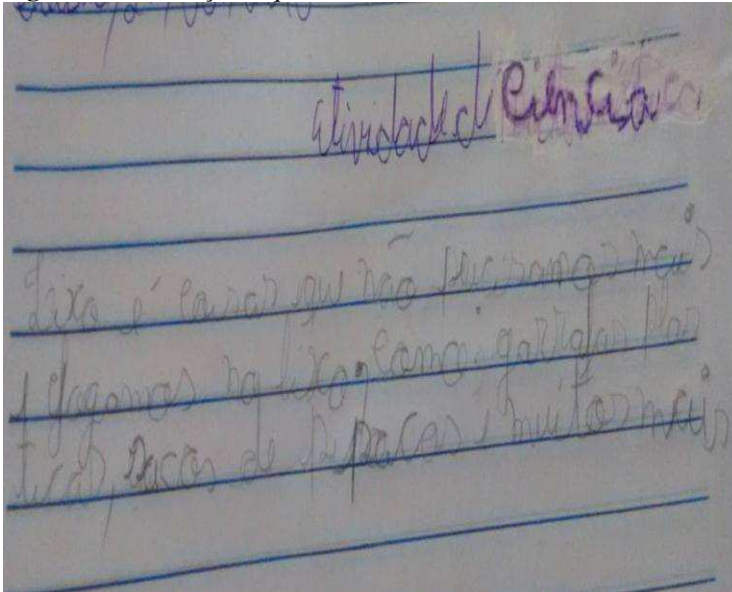 atividade d Ciencia
Lixo é coisas que não precisamos mais
e jogamos no lixo, como: garrafas plas
ticas, sacos de pipocas e muitos mais